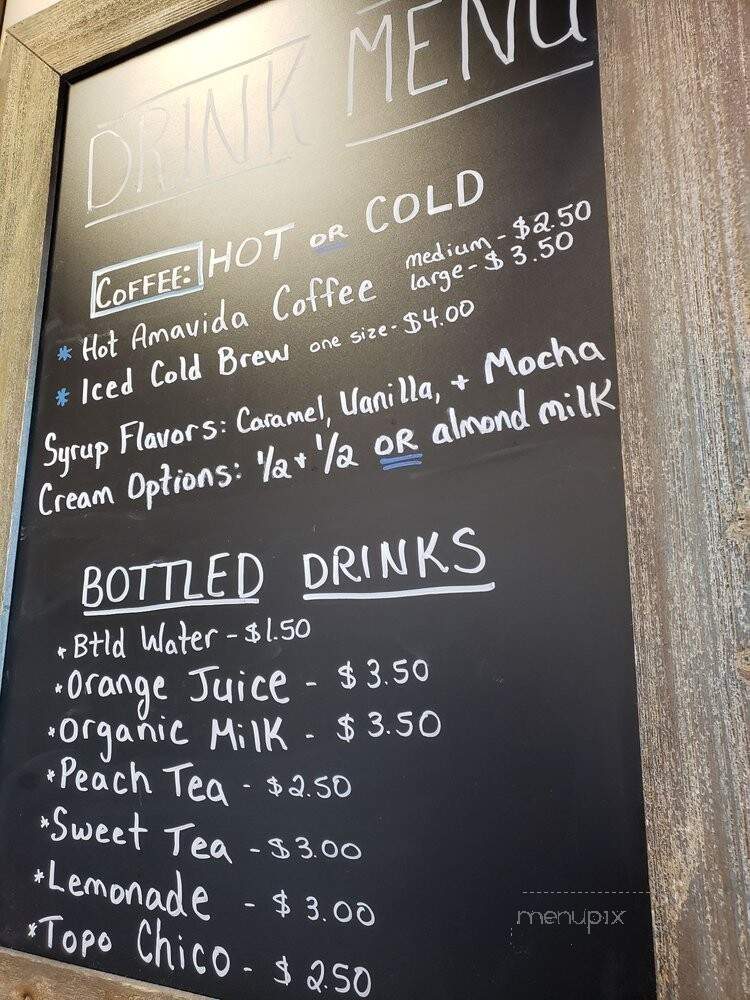 DRINK MENU
COFFEE: HOT OR COLD
* Hot Amavida Coffee medium - $2.50
large - $3.50
* Iced Cold Brew one size - $4.00
Syrup Flavors: Caramel, Vanilla, + Mocha
Cream Options: 1/2 + 1/2 OR almond milk
BOTTLED DRINKS
* Btld Water - $1.50
* Orange Juice - $3.50
* Organic Milk - $3.50
* Peach Tea - $2.50
* Sweet Tea - $3.00
* Lemonade - $3.00
* Topo Chico - $2.50
menupix